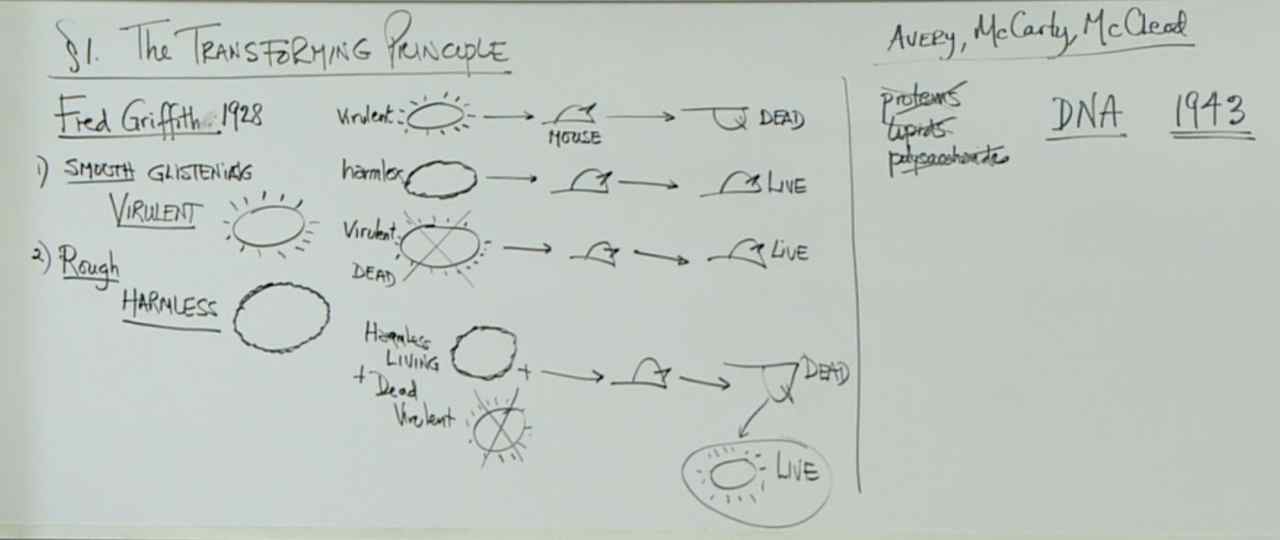 §1. The TRANSFORMING PRINCIPLE
Fred Griffith. 1928
1) SMOOTH GLISTENING
VIRULENT
2) Rough
HARMLESS
Virulent:
MOUSE
DEAD
harmless
LIVE
Virulent
DEAD
LIVE
Harmless
LIVING
+
+ Dead
Virulent
DEAD
LIVE
Avery, McCarty, McCleod
proteins
lipids
polysaccharides
DNA
1943